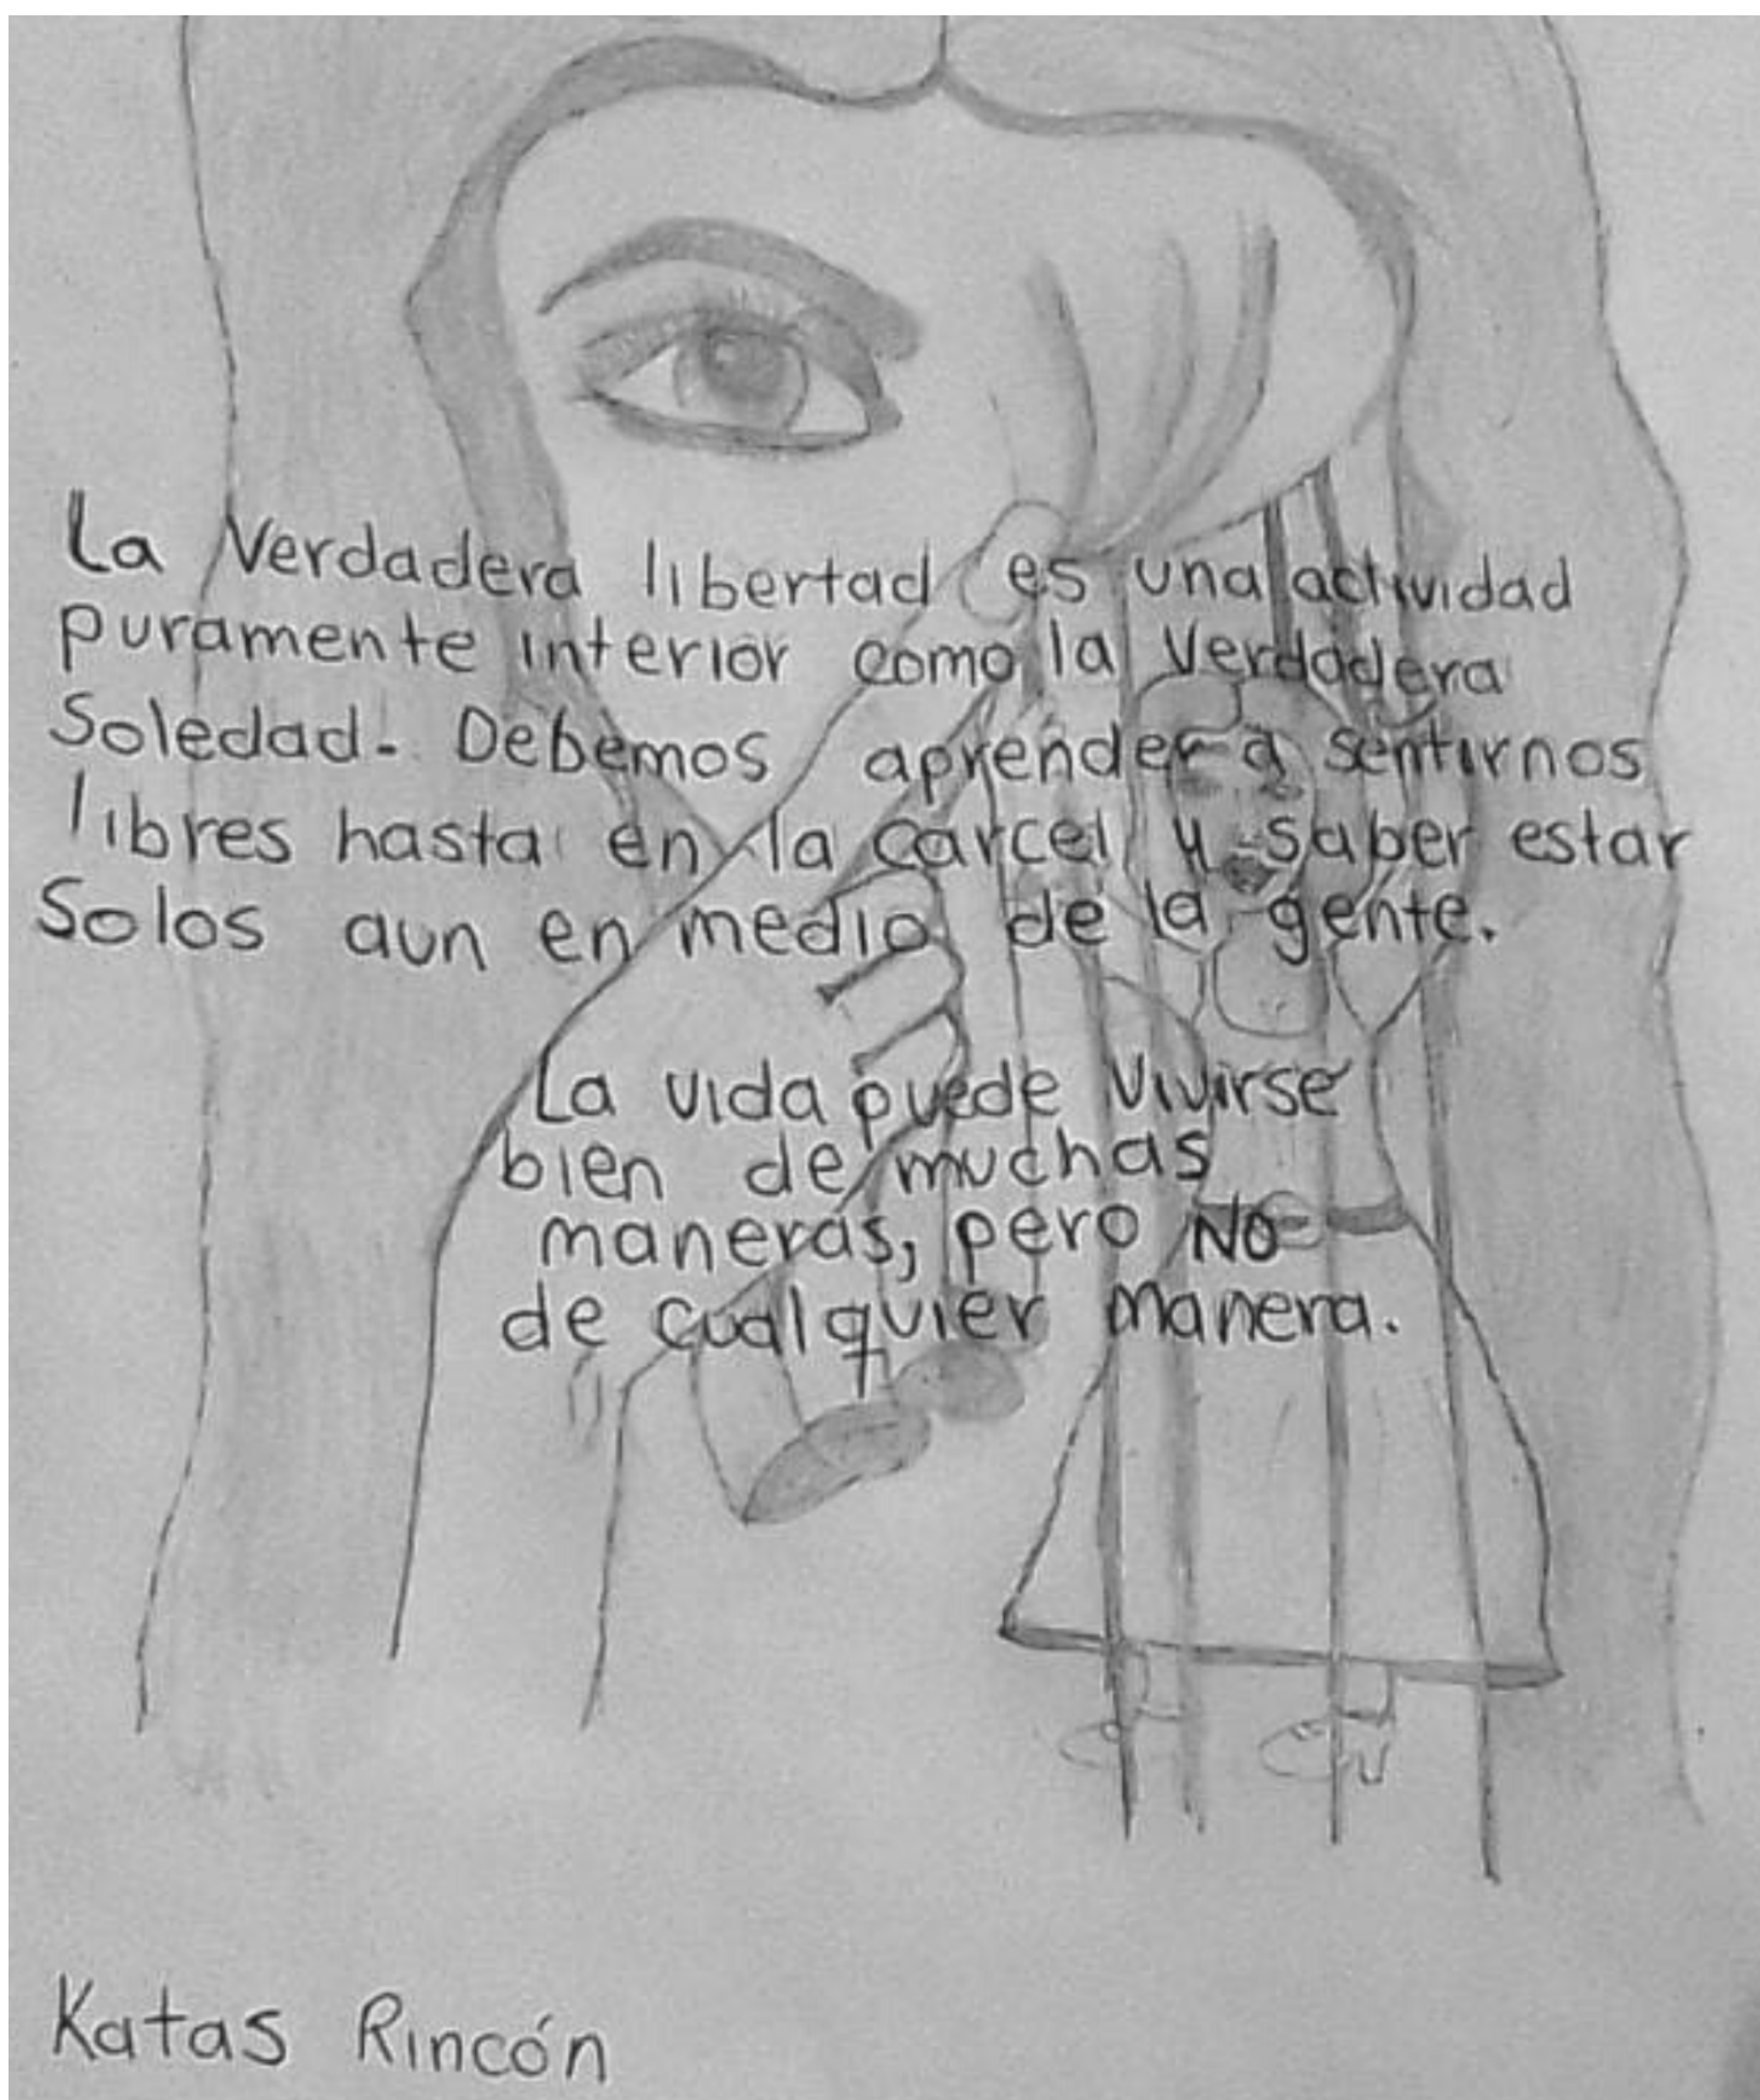 La Verdadera libertad es una actividad
puramente interior como la Verdadera
Soledad. Debemos aprender a sentirnos
libres hasta en la carcel y saber estar
Solos aun en medio de la gente.
La vida puede vivirse
bien de muchas
maneras, pero NO
de cualquier manera.
Katas Rincón